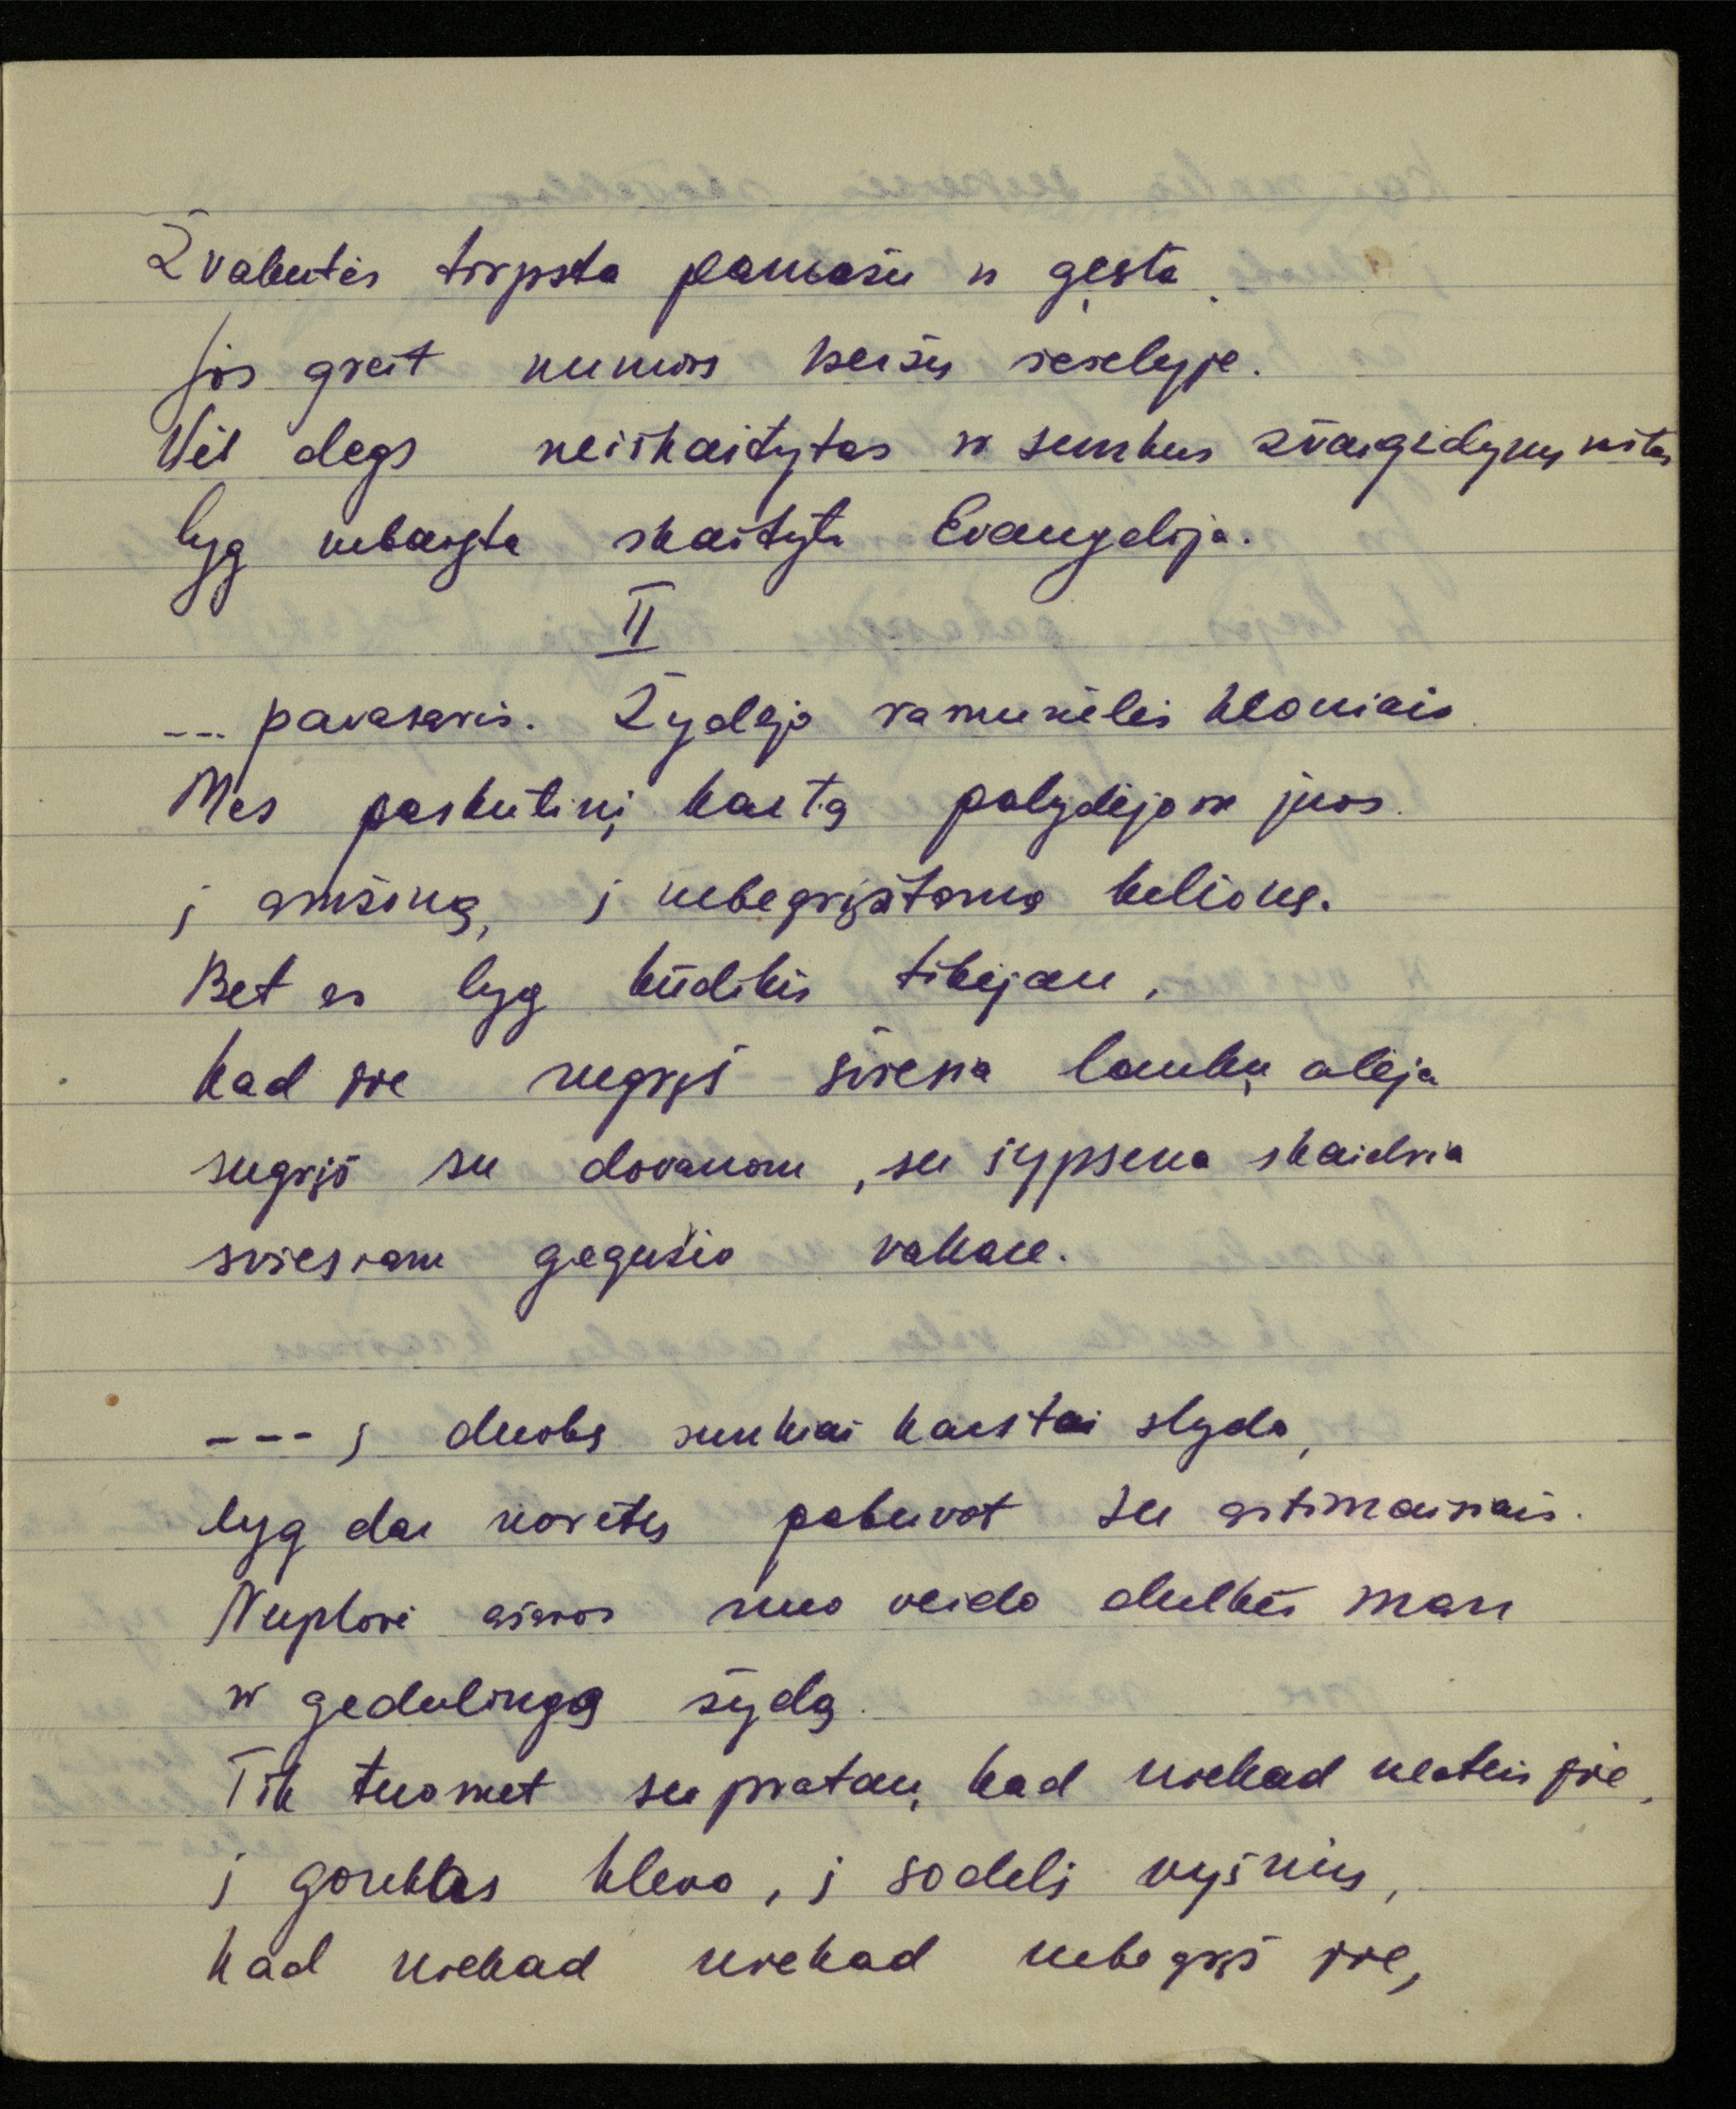 Žvakutės tirpsta pamažu ir gęsta.
Jos greit numirs kersų šešėlyje.
Vėl degs neišskaitytas ir sunkus žvaigždynų raštas
lyg nebaigta skaityti Evangelija.
II
--- pavasaris. Žydėjo ramunėlės kloniais.
Mes paskutinį kartą palydėjom juos.
į amžiną, į nebegrįžtamą kelionę.
Bet aš lyg kūdikis tikėjau,
kad jie sugrįš širena laukų alėja
sugrįš su dovanom, su šypsena skaidria
šviesiam gegužio vakare.
--- į duobę sunkiai karstai slydo,
lyg dar norėtų pabuvot su artimaisiais.
Nuplovė ašaros nuo veido dulkes man
ir gedulingą šydą.
Tik tuomet supratau, kad niekad neateis jie,
į gonkas klevo, į sodelį vyšnių,
kad niekad niekad nebegrįš jie,